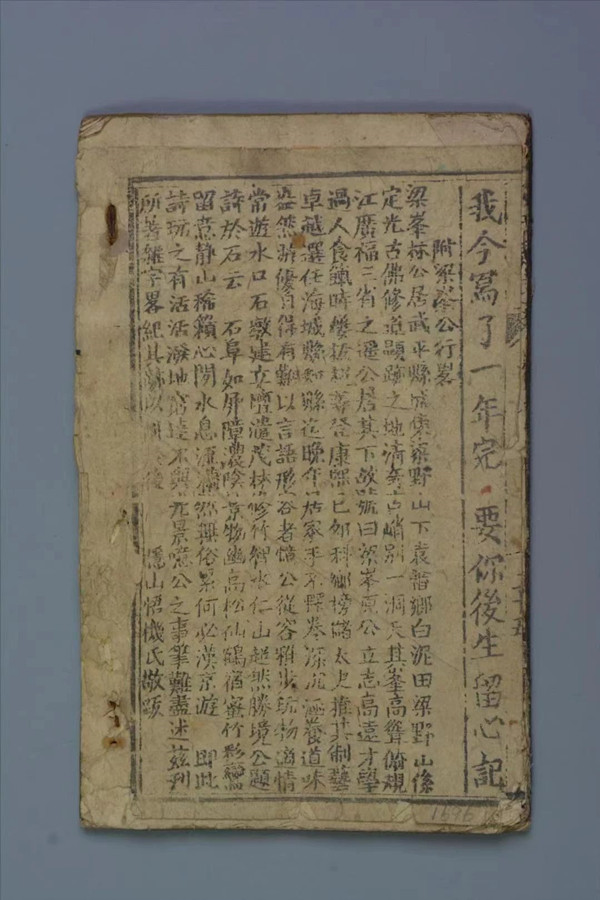 我今寫了一年完 要你後生留心記
附梁峯公行畧
梁峯林公居武平縣城東梁野山下袁畬鄉白泥田梁野山係
定光古佛修道顯跡之地清奇古峭別一洞天其峯高聳俯視
江廣福三省之遥公居其下故號曰梁峯原公立志高遠才學
過人食餼時屢拔超等登康熙己卯科鄉榜儲太史推其制藝
卓越選任海城縣知縣迄晚年居家手不釋卷深沉涵養道味
盎然難以言語形容者憶公從容雅步玩物適情
常遊水口石壁建立林修竹智水仁山超然勝境公題
詩於石云 石阜如屏障濃陰景物幽高松仙鶴宿蜜竹影鸞
留意静山稀籟心閒水息流無俗累何必漢京遊 即此
詩玩之有活活潑地窮達不與光景噫公之事筆難盡述茲刊
所著雜字畧紀其以後 隱山悟機氏敬跋
1696